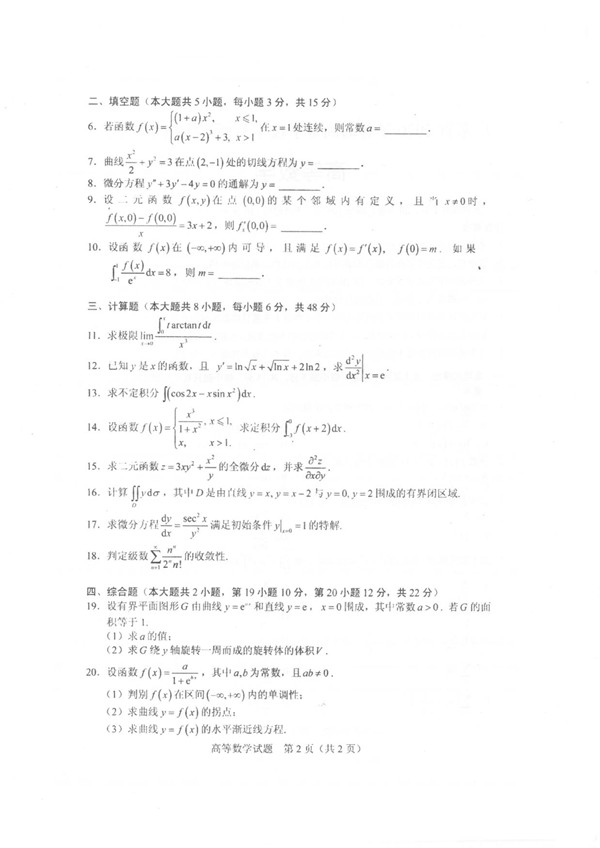 二、填空题（本大题共 5 小题，每小题 3 分，共 15 分）
6．若函数 f(x)={(1+a)x², x⩽1, a(x−2)³+3, x>1 在 x=1 处连续，则常数 a= ______．
7．曲线 x²/2+y²=3 在点 (2,−1) 处的切线方程为 y= ______．
8．微分方程 y″+3y′−4y=0 的通解为 y= ______．
9．设二元函数 f(x,y) 在点 (0,0) 的某个邻域内有定义，且当 x≠0 时，
(f(x,0)−f(0,0))/x=3x+2，则 f′ₓ(0,0)= ______．
10．设函数 f(x) 在 (−∞,+∞) 内可导，且满足 f(x)=f′(x)，f(0)=m．如果
∫₋₁¹ f(x)/eˣ dx=8，则 m= ______．
三、计算题（本大题共 8 小题，每小题 6 分，共 48 分）
11．求极限 lim x→0 ∫₀ˣ t arctan t dt / x³．
12．已知 y 是 x 的函数，且 y′=ln√x+√ln x+2ln2，求 d²y/dx² | x=e．
13．求不定积分 ∫(cos2x−x sin x²)dx．
14．设函数 f(x)={x³/(1+x²), x⩽1, x, x>1. 求定积分 ∫₋₃⁰ f(x+2)dx．
15．求二元函数 z=3xy²+x²/y 的全微分 dz，并求 ∂²z/∂x∂y．
16．计算 ∬_D y dσ，其中 D 是由直线 y=x, y=x−2 与 y=0, y=2 围成的有界闭区域．
17．求微分方程 dy/dx=sec²x/y² 满足初始条件 y|ₓ₌₀=1 的特解．
18．判定级数 ∑ₙ₌₁^∞ nⁿ/(2ⁿn!) 的收敛性．
四、综合题（本大题共 2 小题，第 19 小题 10 分，第 20 小题 12 分，共 22 分）
19．设有界平面图形 G 由曲线 y=eᵃˣ 和直线 y=e，x=0 围成，其中常数 a>0．若 G 的面
积等于 1．
（1）求 a 的值；
（2）求 G 绕 y 轴旋转一周而成的旋转体的体积 V．
20．设函数 f(x)=a/(1+eᵇˣ)，其中 a,b 为常数，且 ab≠0．
（1）判别 f(x) 在区间 (−∞,+∞) 内的单调性；
（2）求曲线 y=f(x) 的拐点；
（3）求曲线 y=f(x) 的水平渐近线方程．
高等数学试题 第 2 页（共 2 页）